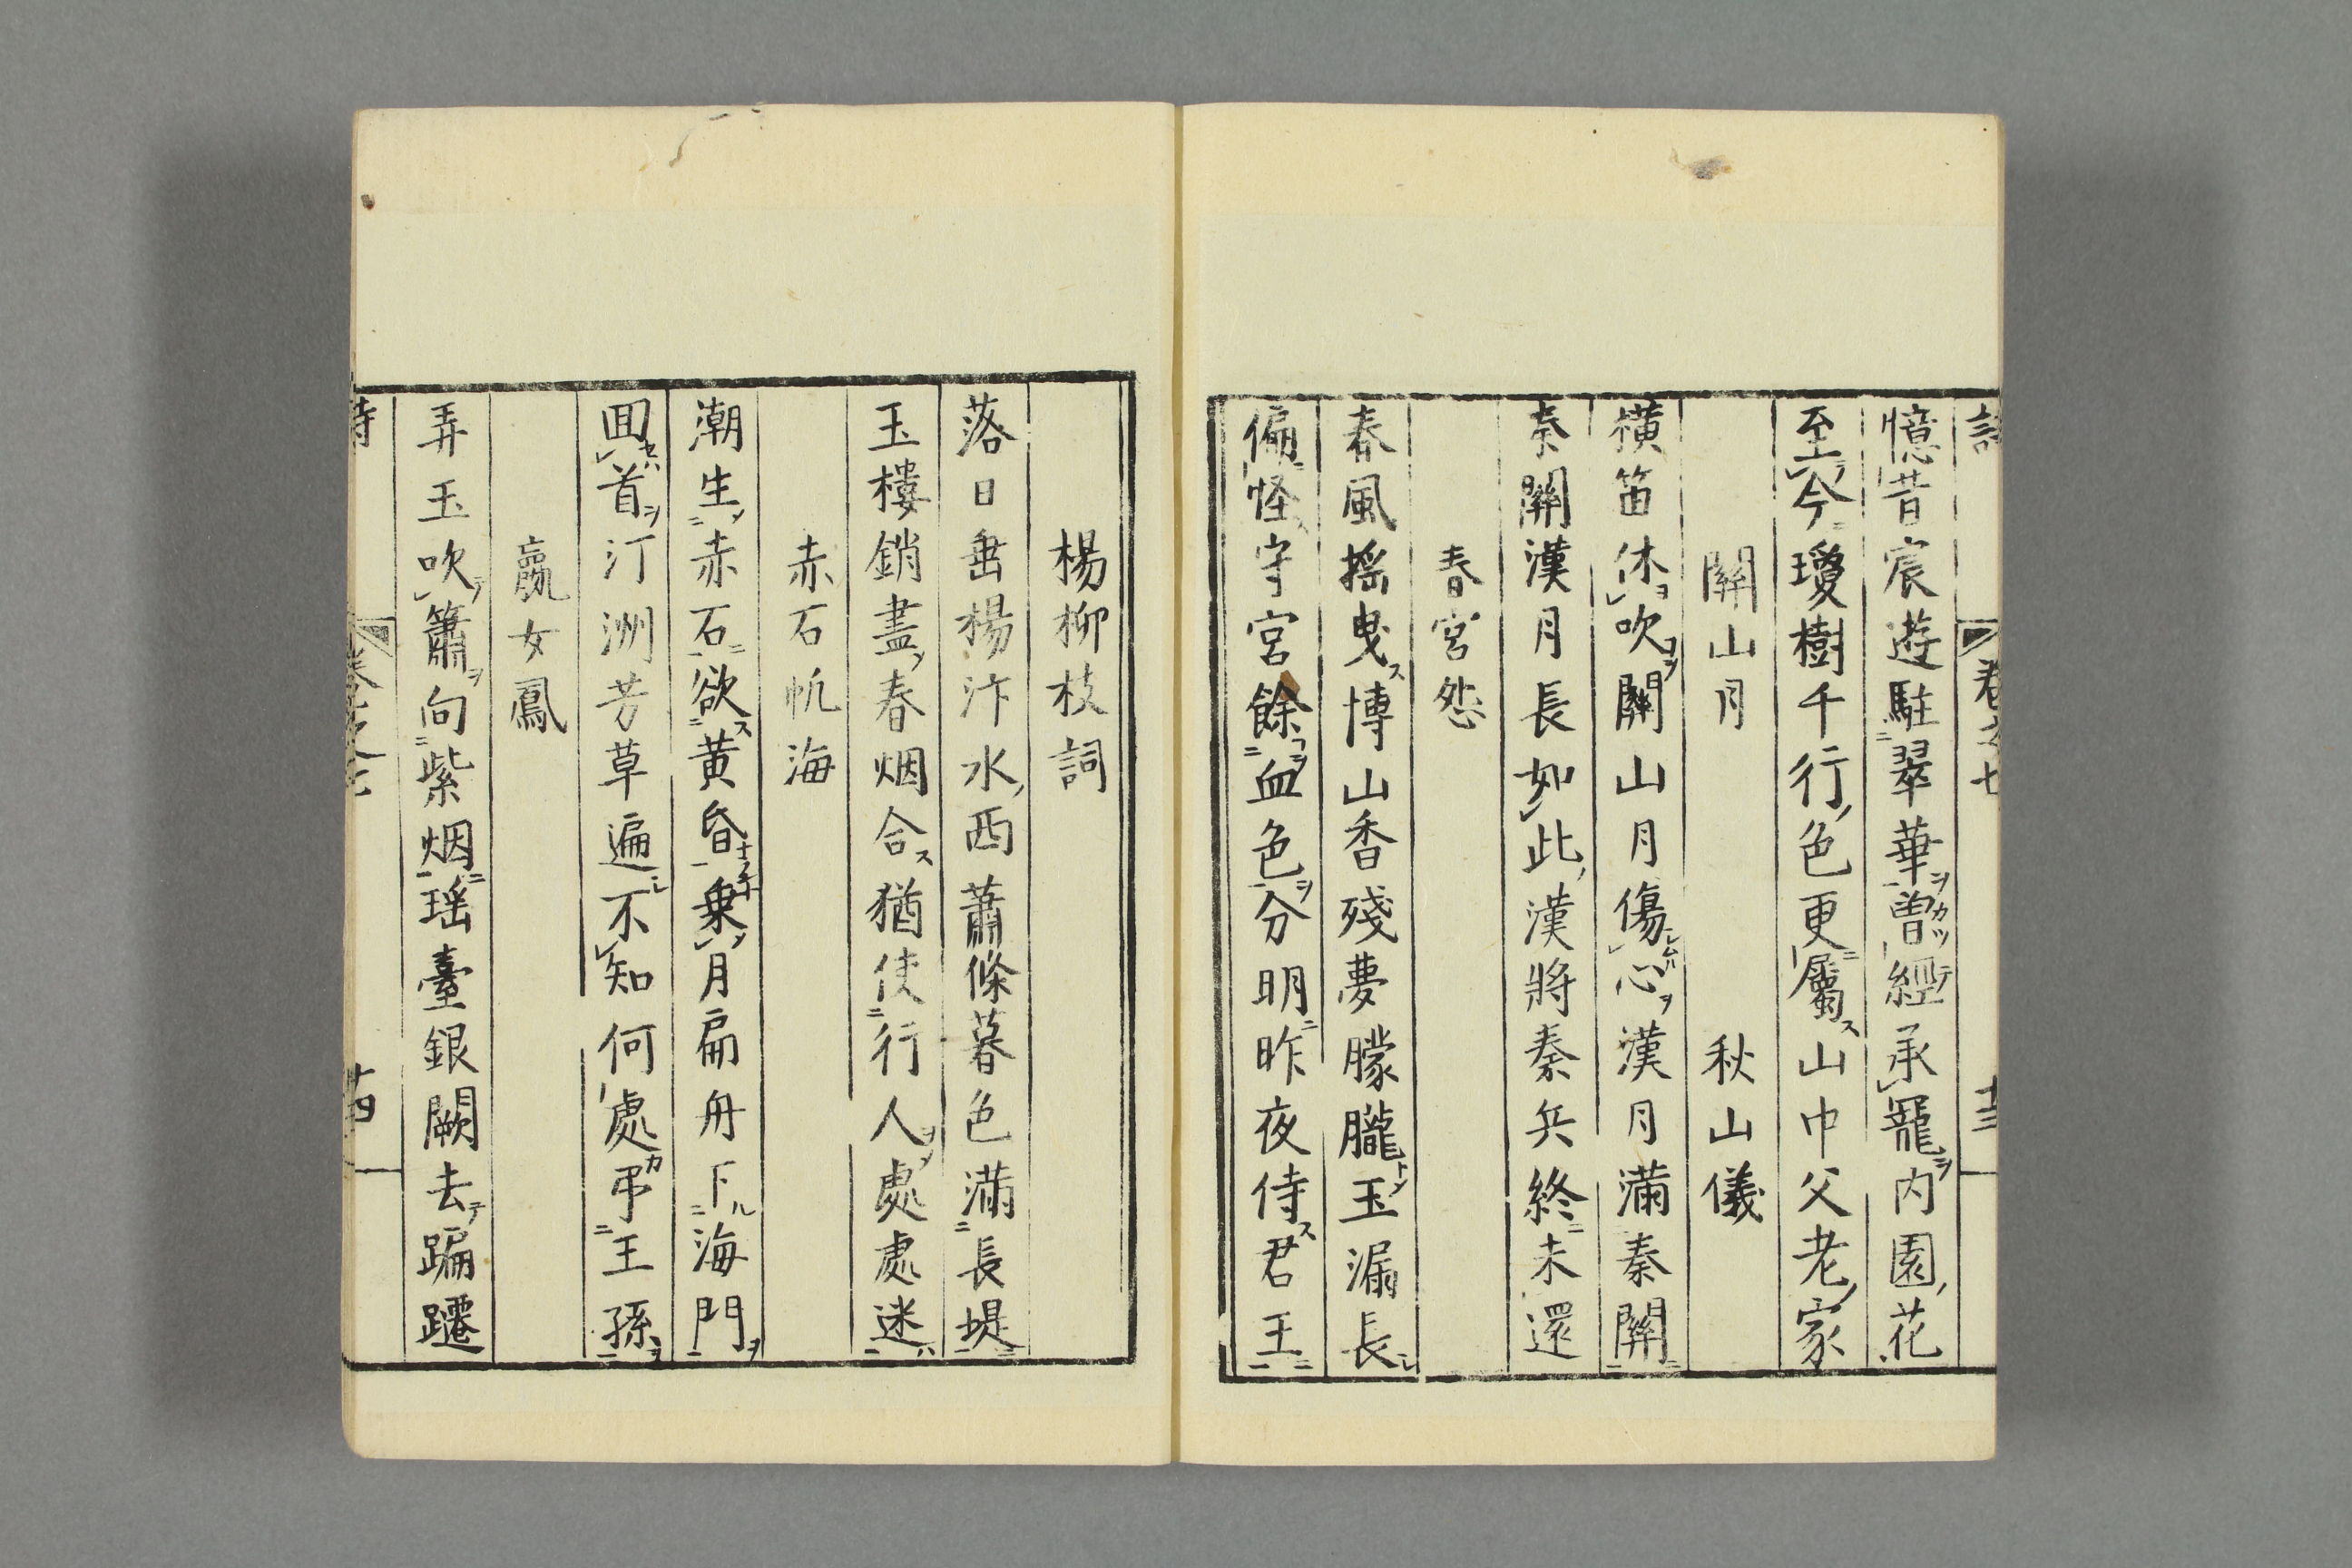 卷之七
十三
憶昔宸遊駐翠華曽經承寵内園花
至今瓊樹千行色更屬山中父老家
關山月 秋山儀
横笛休吹關山月傷心漢月滿秦關
秦關漢月長如此漢將秦兵終未還
春宮怨
春風搖曳博山香殘夢朦朧玉漏長
偏怪守宮餘血色分明昨夜侍君王
楊柳枝詞
落日垂楊汴水西蕭條暮色滿長堤
玉樓銷盡春烟合猶使行人處處迷
赤石帆海
潮生赤石欲黄昏乗月扁舟下海門
回首汀洲芳草遍不知何處弔王孫
嬴女鳳
弄玉吹簫向紫烟瑶臺銀闕去蹁躚